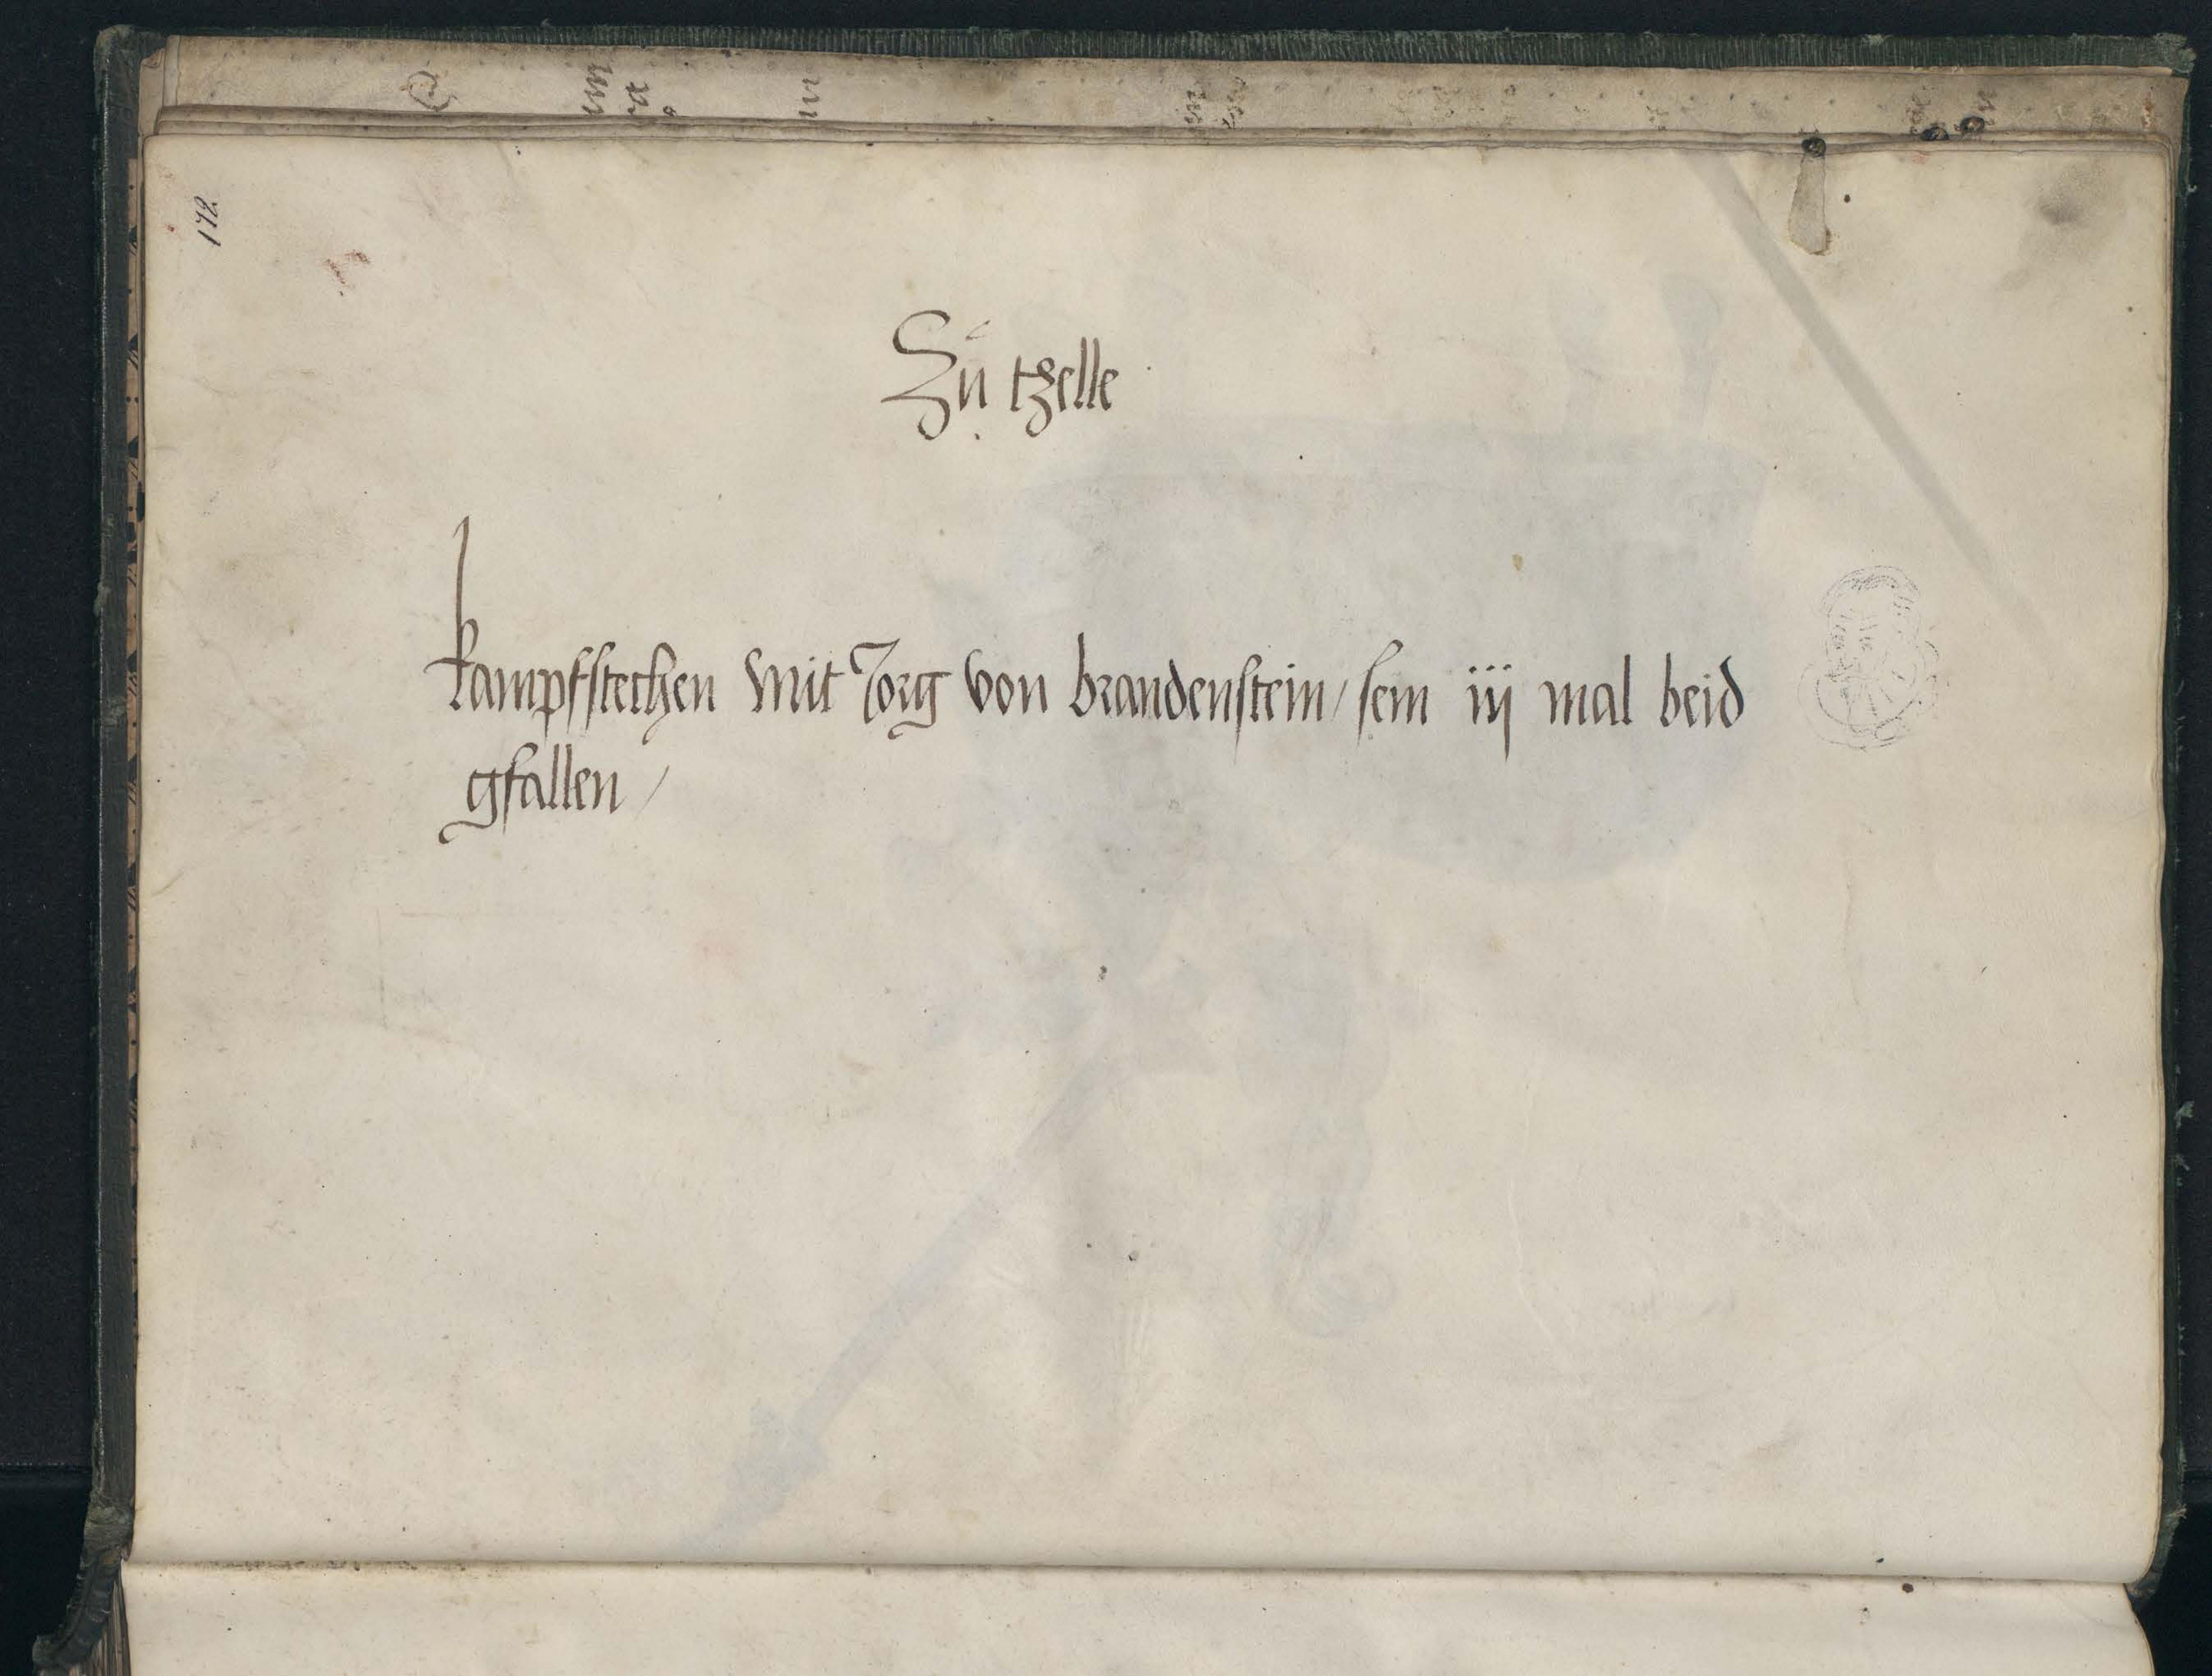 172
Zů tzelle
kampfstechen Mit Jorg von brandenstein / sein iij mal beid
gfallen /